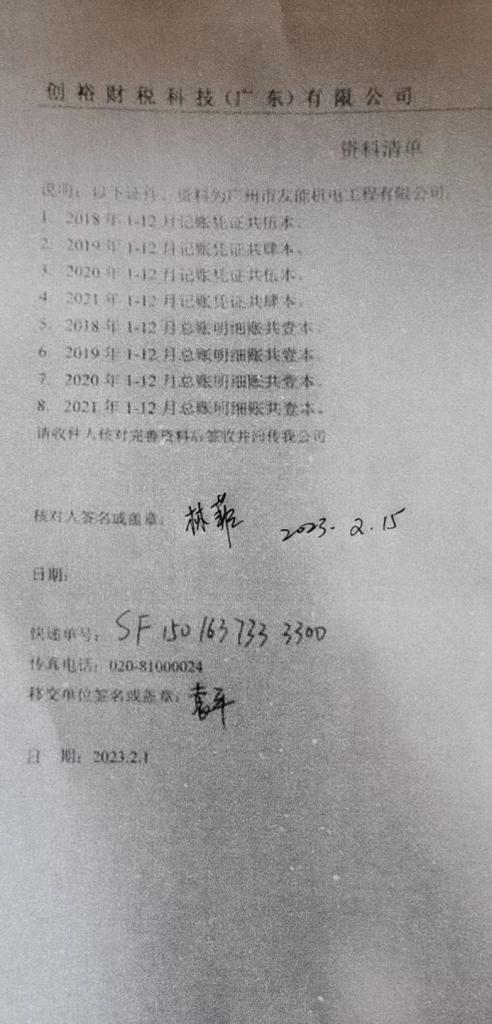 创裕财税科技(广东)有限公司
资料清单
说明：以下证件、资料为广州市友能机电工程有限公司。
1. 2018年1-12月记账凭证共伍本。
2. 2019年1-12月记账凭证共肆本。
3. 2020年1-12月记账凭证共伍本。
4. 2021年1-12月记账凭证共肆本。
5. 2018年1-12月总账明细账共壹本。
6. 2019年1-12月总账明细账共壹本。
7. 2020年1-12月总账明细账共壹本。
8. 2021年1-12月总账明细账共壹本。
请收件人核对完善资料后签收并回传我公司
核对人签名或盖章： 林 2023.2.15
日期:
快递单号： SF 150 163 733 3300
传真电话：020-81000024
移交单位签名或盖章： 袁平
日 期：2023.2.1